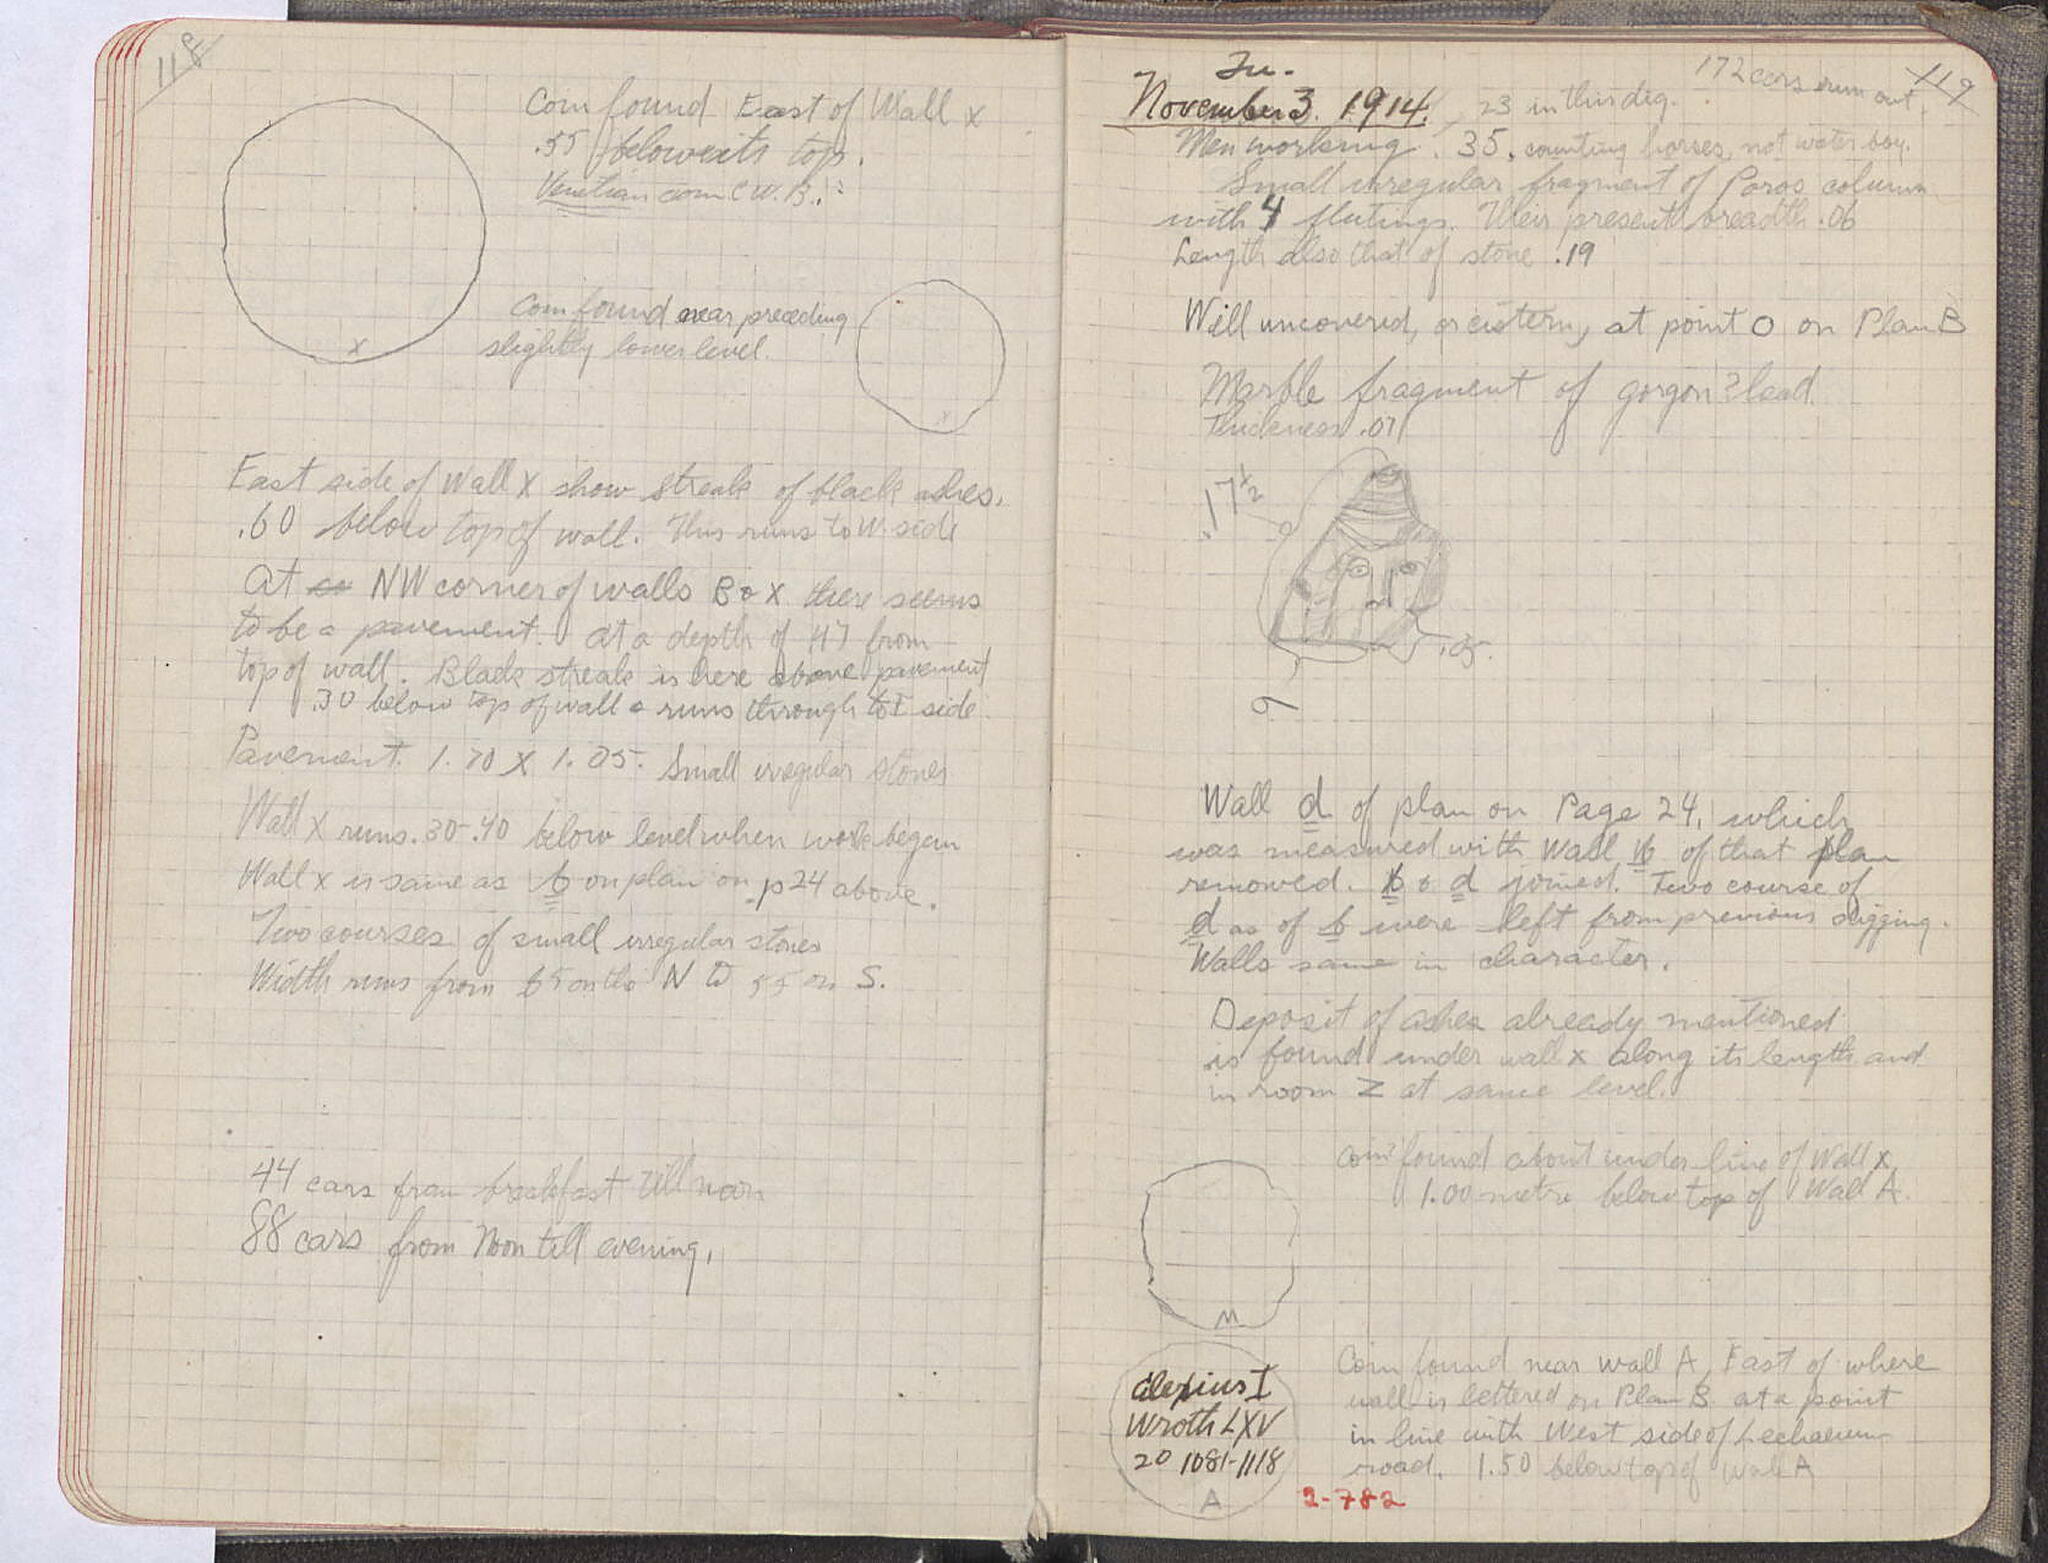 118
Coin found East of Wall x
.55 below its top.
Venetian coin C.W.B.
x
Coin found near preceding
slightly lower level.
x
East side of Wall X show streak of black ashes.
.60 below top of wall. This runs to W. side
At NW corner of walls B & X there seems
to be a pavement. At a depth of .47 from
top of wall. Black streak is here above pavement
.30 below top of wall & runs through to E side
Pavement. 1.70 X 1.05. Small irregular stones
Wall X runs .30-.40 below level when work began
Wall x is same as b on plan on p 24 above.
Two courses of small irregular stones
Width runs from 65 on the N to 55 on S.
44 cars from breakfast till noon
88 cars from Noon till evening.
119
Tu.
172 cars run out.
November 3. 1914. 23 in this dig.
Men working. 35. counting horses, not water boy.
Small irregular fragment of Poros column
with 4 flutings. Their present breadth .06
Length also that of stone .19
Well uncovered, or cistern, at point O on Plan B
Marble fragment of gorgon? head.
Thickness .07
.17½
.05.
9
Wall d of plan on Page 24, which
was measured with Wall b of that plan
removed. b & d joined. Two course of
d as of b were left from previous digging.
Walls same in character.
Deposit of ashes already mentioned
is found under wall x along its length and
in room Z at same level.
Coin found about under line of Wall x,
1.00 metre below top of Wall A.
M
Coin found near wall A, East of where
wall is lettered on Plan B at a point
in line with West side of Lechaeum
road. 1.50 below top of wall A
Alexius I
Wroth LXV
20 1081-1118
A
2-782